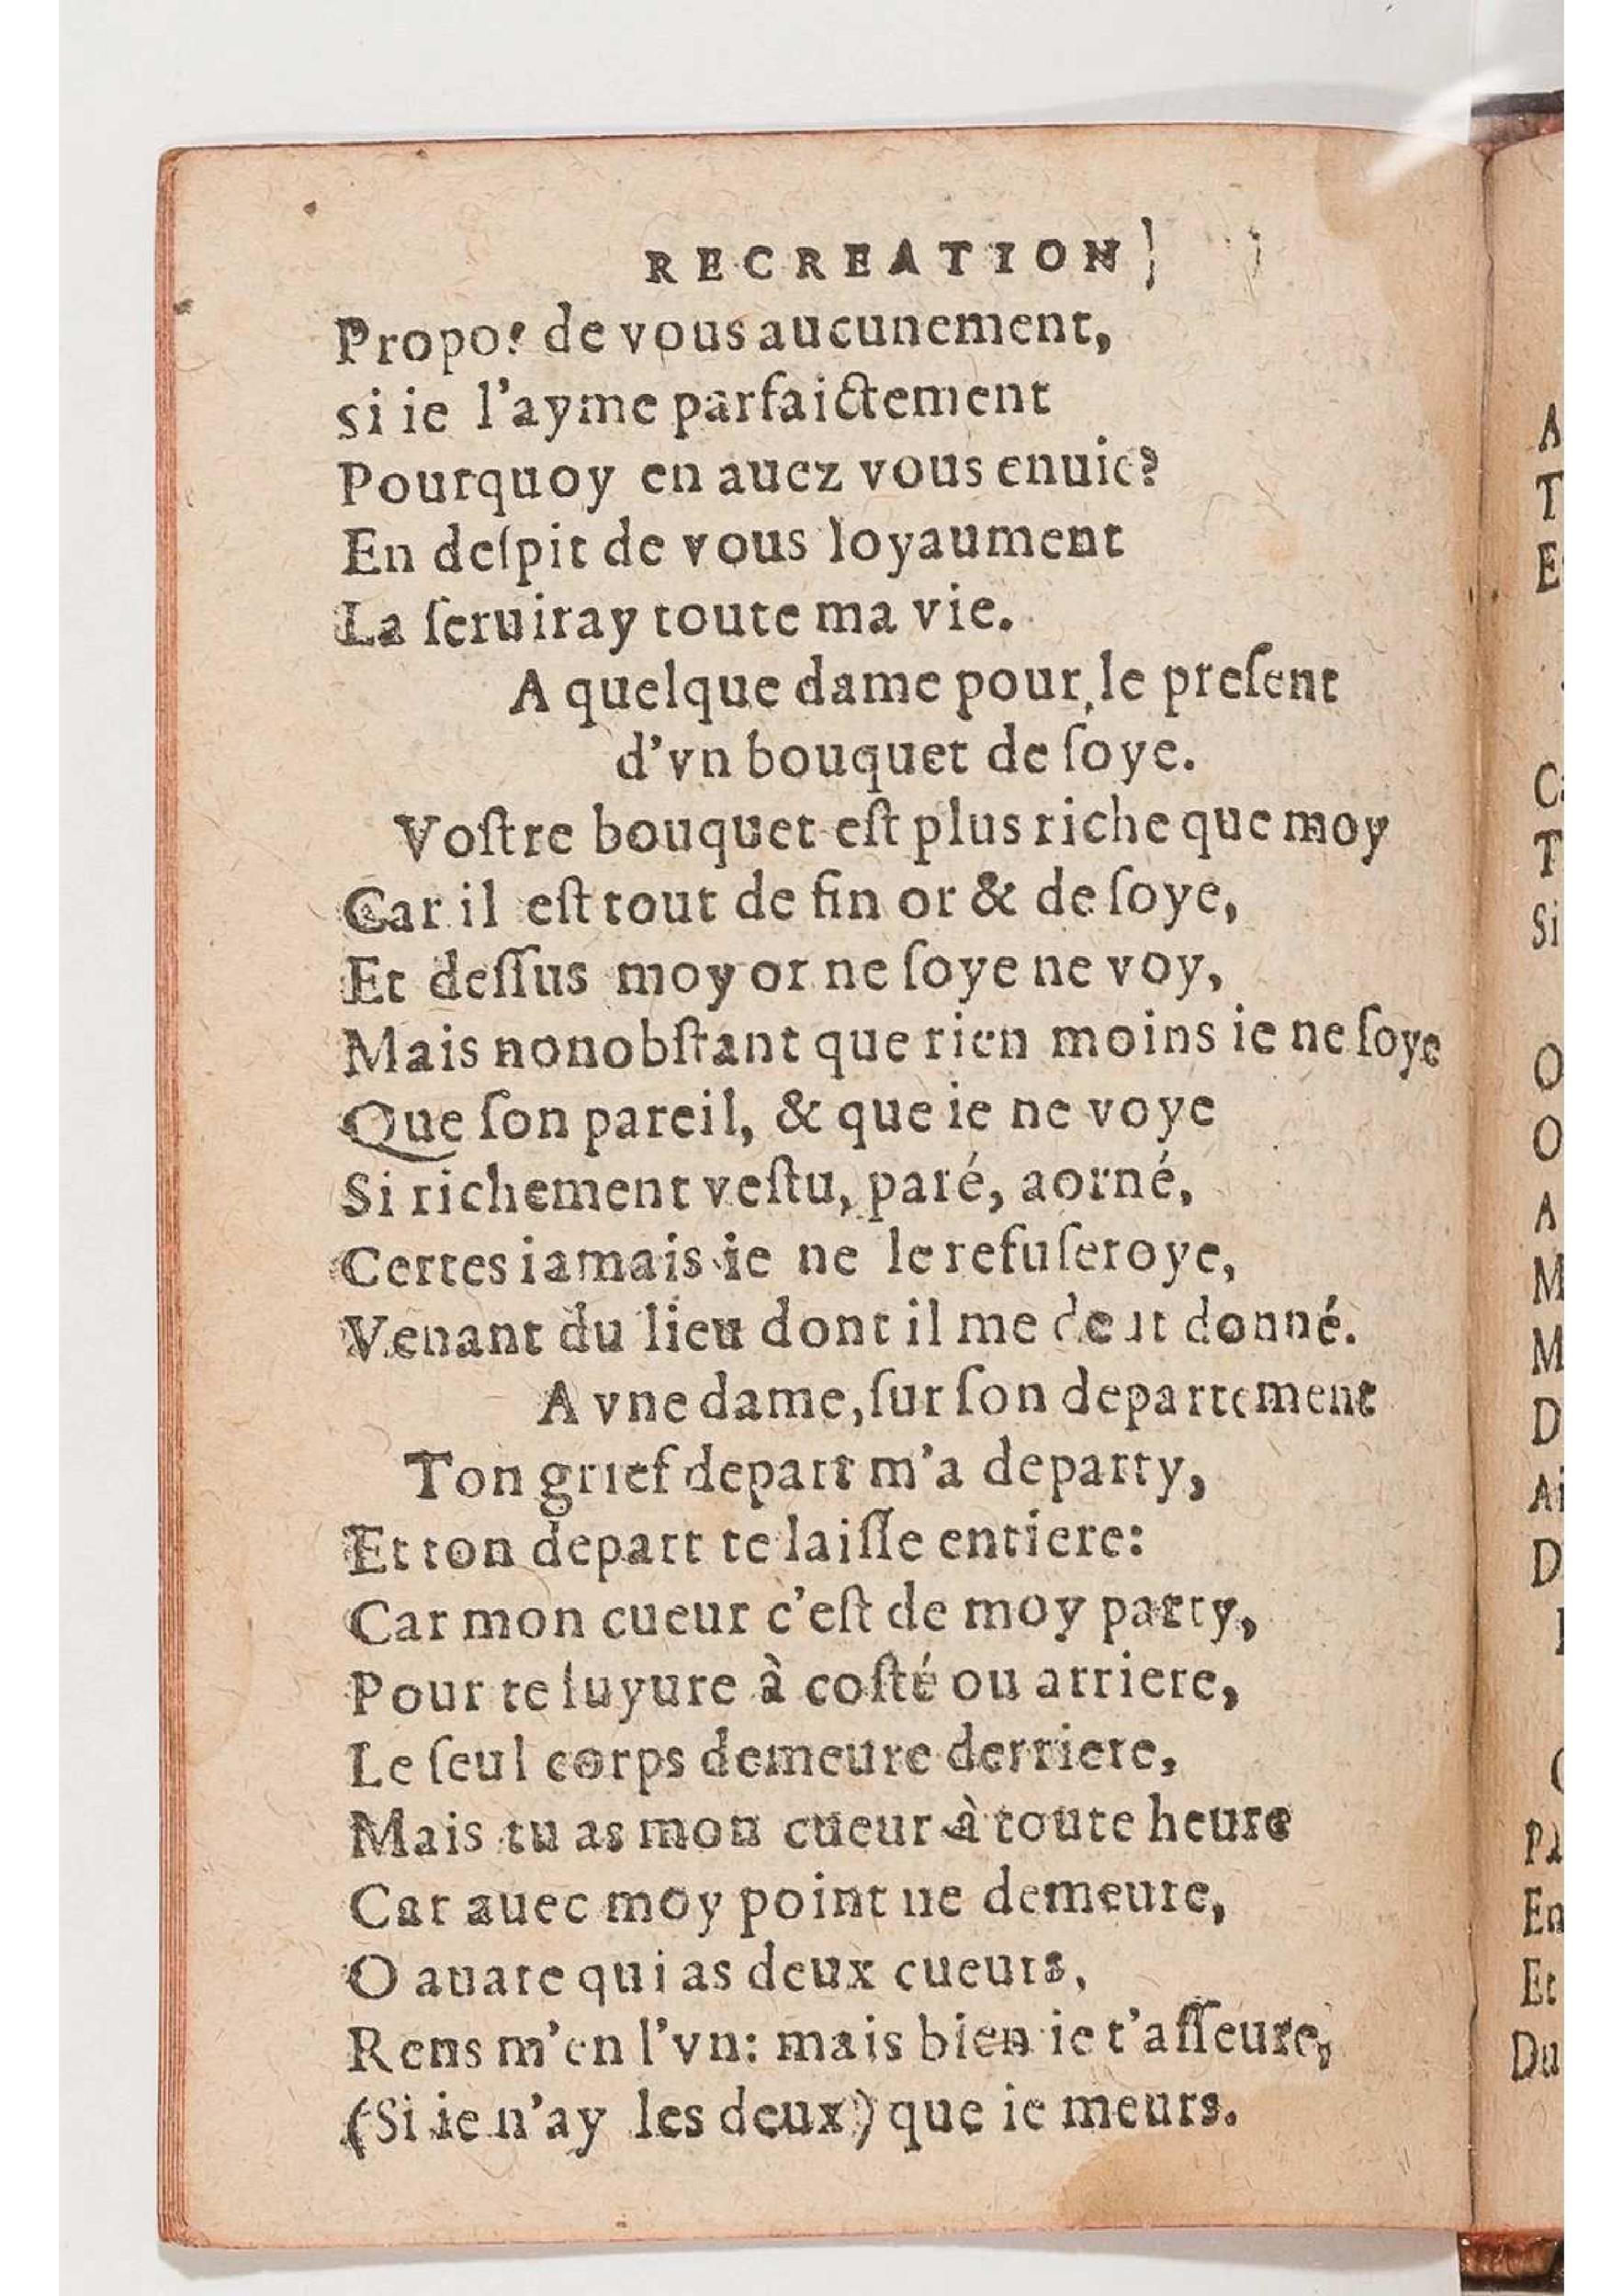 RECREATION
Propos de vous aucunement,
si ie l'ayme parfaictement
Pourquoy en auez vous enuie?
En deſpit de vous loyaument
La ſeruiray toute ma vie.
A quelque dame pour le preſent
d'vn bouquet de ſoye.
Voſtre bouquet eſt plus riche que moy
Car il eſt tout de fin or & de ſoye,
Et deſſus moy or ne ſoye ne voy,
Mais nonobſtant que rien moins ie ne ſoye
Que ſon pareil, & que ie ne voye
Si richement veſtu, paré, aorné,
Certes iamais ie ne le refuſeroye,
Venant du lieu dont il me donné.
A vne dame, ſur ſon departement
Ton grief depart m'a departy,
Et ton depart te laiſſe entiere:
Car mon cueur c'eſt de moy party,
Pour te ſuyure à coſté ou arriere,
Le ſeul corps demeure derriere,
Mais tu as mon cueur à toute heure
Car auec moy point ne demeure,
O auare qui as deux cueurs,
Rens m'en l'vn: mais bien ie t'aſſeure,
(Si ie n'ay les deux) que ie meurs.